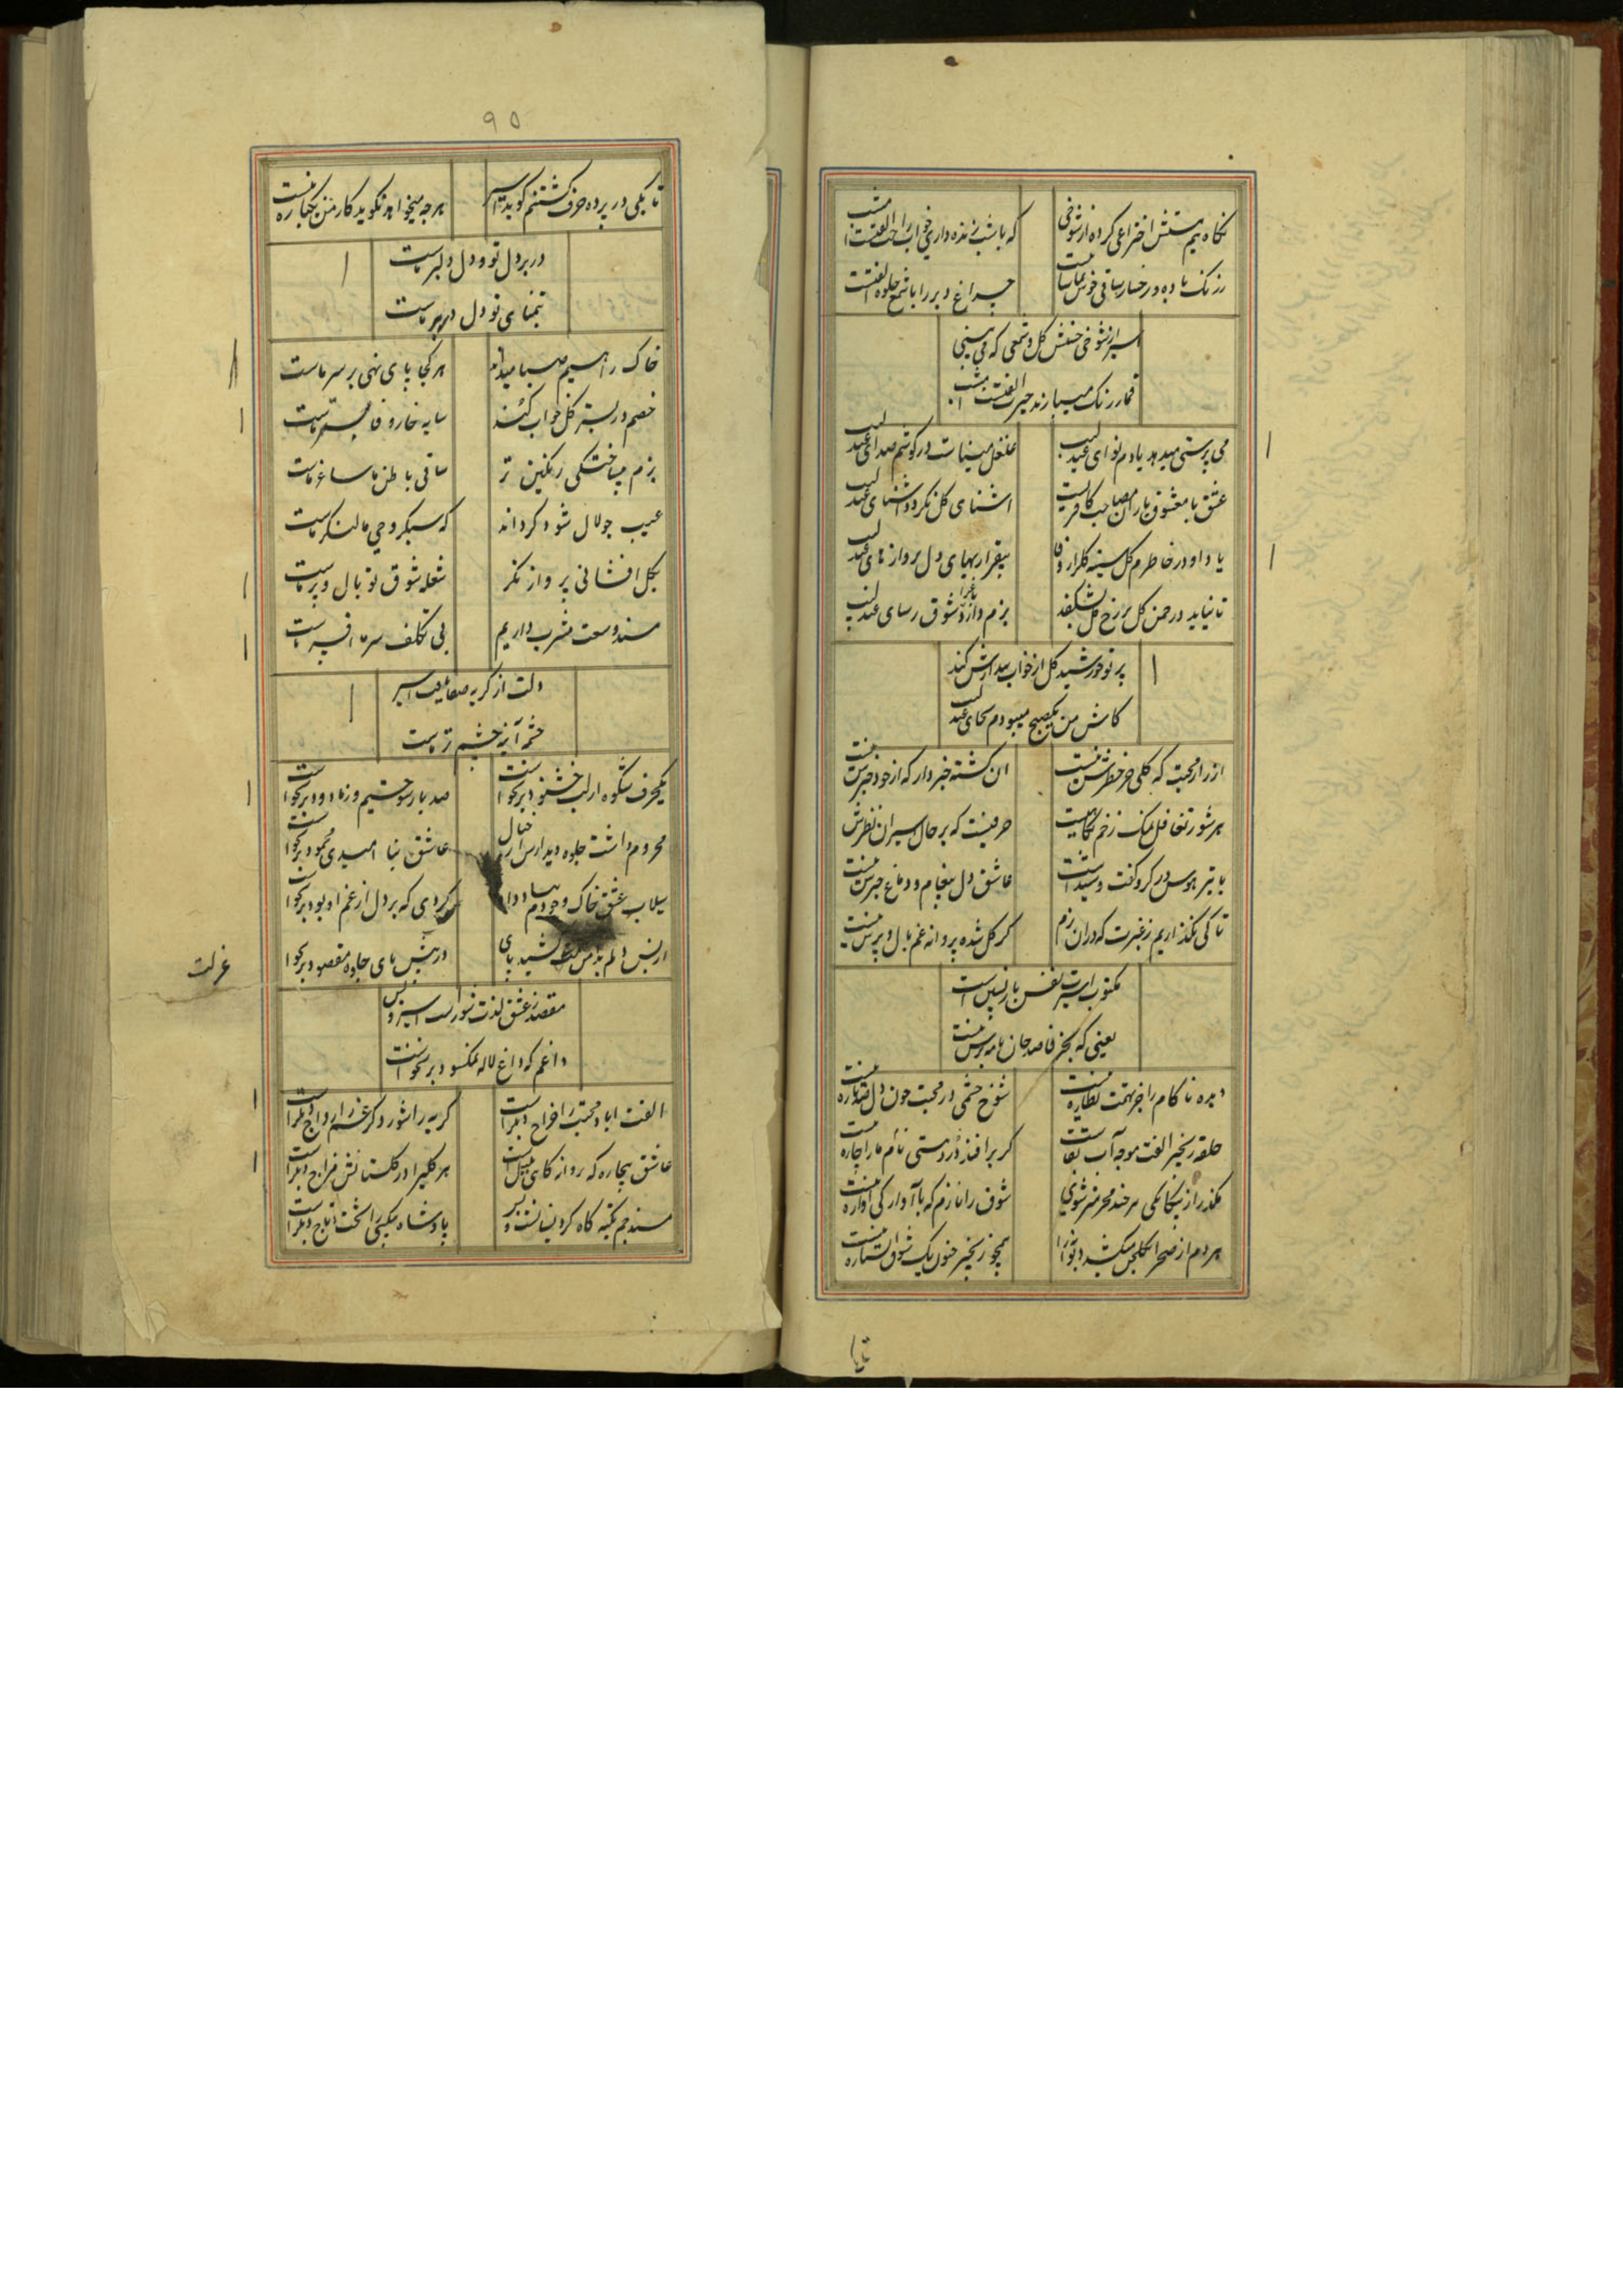 نکاه نیم مستش اختراعی کرده از شوخی
که با شب زنده داری خواب را حب الفتست
ز رنک باده و رخسار ساقی خوش تماشاست
چراغ دیر را با شمع جلوه الفتست
اسیر از شوخی حسنش کل و شمعی که می بینی
قمار رنک میبازند حیرت الفتست
می پرستی میدهد یادم نوای عندلیب
غلغل میناست در کوشم صدای عندلیب
عشق با معشوق یاران مصاحب کافریست
اشنای کل نکردد اشنای عندلیب
یاد او در خاطرم کل سینه کلزار وفا
بیقراریهای دل پروازهای عندلیب
تا نیاید در چمن کل بر رخ کل نشکفد
بزم دارد شوق رسای عندلیب
پرتو خورشید کل از خواب بیدارش کند
کاش من یکصبح میبودم بجای عندلیب
از راز محبت که کلی جز خطرش نیست
ان کشته خبردار که از خود خبرش نیست
هر شور تغافل نمک زخم نکاهیست
حرفیست که بر حال اسیران نظرش نیست
عاشق دل پیغام و دماغ خبرش نیست
تا کی نکذاریم ز غیرت که دران بزم
کر کل شده پروانه غم بال و پرش نیست
مکتوب اسیرت نفس بازپسین است
یعنی که بجز قاصد جان نامه برش نیست
دیده ناکام را جز تهمت نظاره نیست
شوخ چشمی در محبت چون دل صد پاره نیست
حلقه زنجیر الفت موجه آب بقاست
کر برافتد درد مستی نام ما را چاره نیست
مکذر از بیکانکی هر چند محرمتر شوی
شوق را نازم که با آوارکی آواره نیست
هر دم از صحرا بکلجن میکشد دیوانه را
همچو زنجیر جنون یک شوق استاره نیست
تا بکی
۹۵
تا بکی در پرده حرف کشتنم کوید اسیر
هر چه میخواهد نکوید کار من یکباره نیست
در بر دل تو و دل دلبر ماست
تمنای تو دل در بر ماست
خاک راهیم صبا میداند
هر کجا پای نهی بر سر ماست
خصم در بستر کل خواب کند
سایه خار وفا بستر ماست
بزم بیساختکی رنکین تر
ساقی باطن ما ساغر ماست
عیب جولان شود کرداند
که سبکروحی ما لنکر ماست
بکل افشانی پرواز نکر
شعله شوق تو بال و پر ماست
مسند وسعت مشرب داریم
بی تکلف سر ما افسر ماست
دلت از کریه صفا یافت اسیر
چشمه آینه چشم تر ماست
یکحرف شکوه از لب خشنود برنخواست
صد بار سوختیم و ز ما دود برنخواست
محروم داشت جلوه دیدارش از خیال
عاشق بنا امیدی محمود برنخواست
سیلاب عشق خاک وجودم بباد داد
کردی که بر دل از غم او بود برنخواست
از بس دلم بدامن عزلت کشید پای
در پیش پای جلوه مقصود برنخواست
عزلت
مقصد ز عشق لذت شوراست اسیر و بس
داغم که داغ لاله نمکسود برنخواست
الفت اباد محبت را خراج دیکر است
کریه را شور دکر غم را رواج دیکر است
عاشق بیچاره که پرواز کاهی بلبل است
هر کلی را در کلستانش مزاج دیکر است
مسند جم تکیه کاه کرد بنشست و
پادشاه بیکسی را تخت و تاج دیکر است